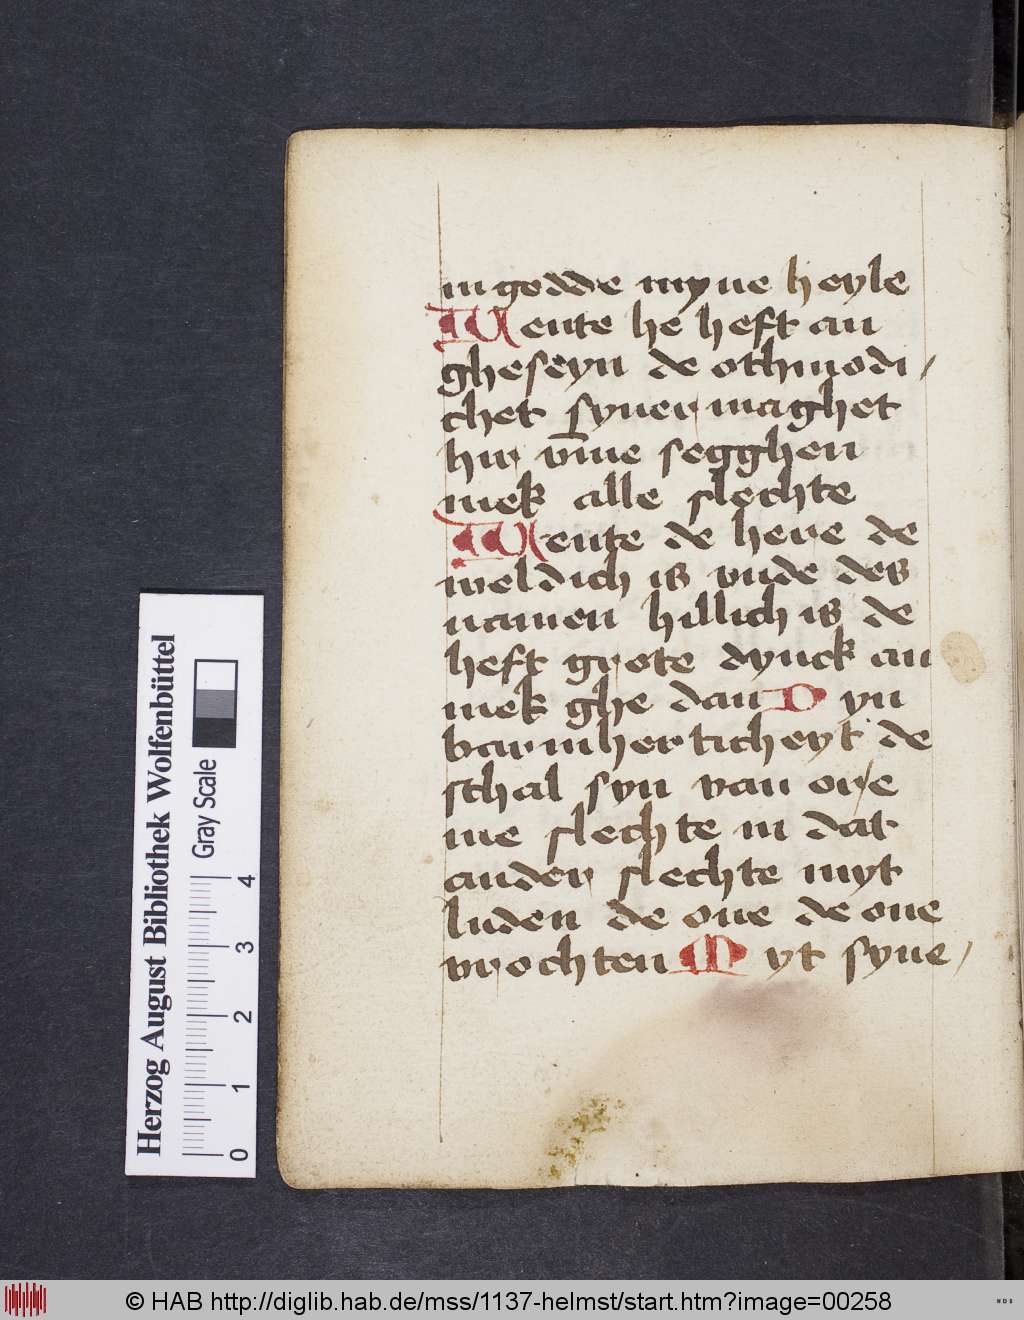 in godde myne heyle
Wente he heft an
gheseyn de othmodi/
chet syner maghet
hir vm̄e segghen
mek alle slechte
Wente de here de
weldich is vnde des
namen hillich is de
heft grote dynck an
mek ghe dan Dyn
barmherticheyt de
schal syn van oṙe
me slechte in dat
ander slechte myt
luden de one de one
vrochten Myt syne/
Herzog August Bibliothek Wolfenbüttel
Gray Scale
0 1 2 3 4
© HAB http://diglib.hab.de/mss/1137-helmst/start.htm?image=00258